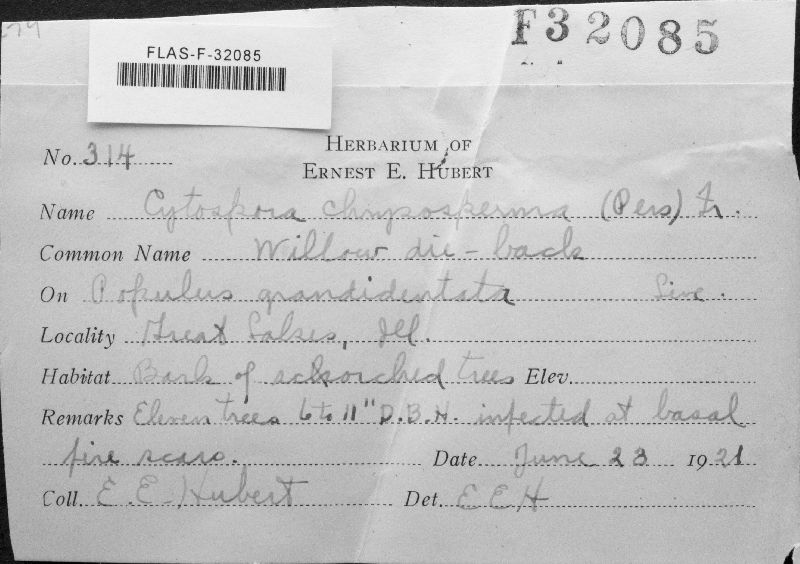 F32085
FLAS-F-32085
HERBARIUM OF
ERNEST E. HUBERT
No. 314
Name Cytospora chrysosperma (Pers) Fr.
Common Name Willow die-back
On Populus grandidentata Live.
Locality Great Lakes, Ill.
Habitat Bark of scorched trees Elev.
Remarks Eleven trees 6 to 11" D.B.H. infected at basal
fire scars. Date June 23 1921
Coll. E. E. Hubert Det. E E H